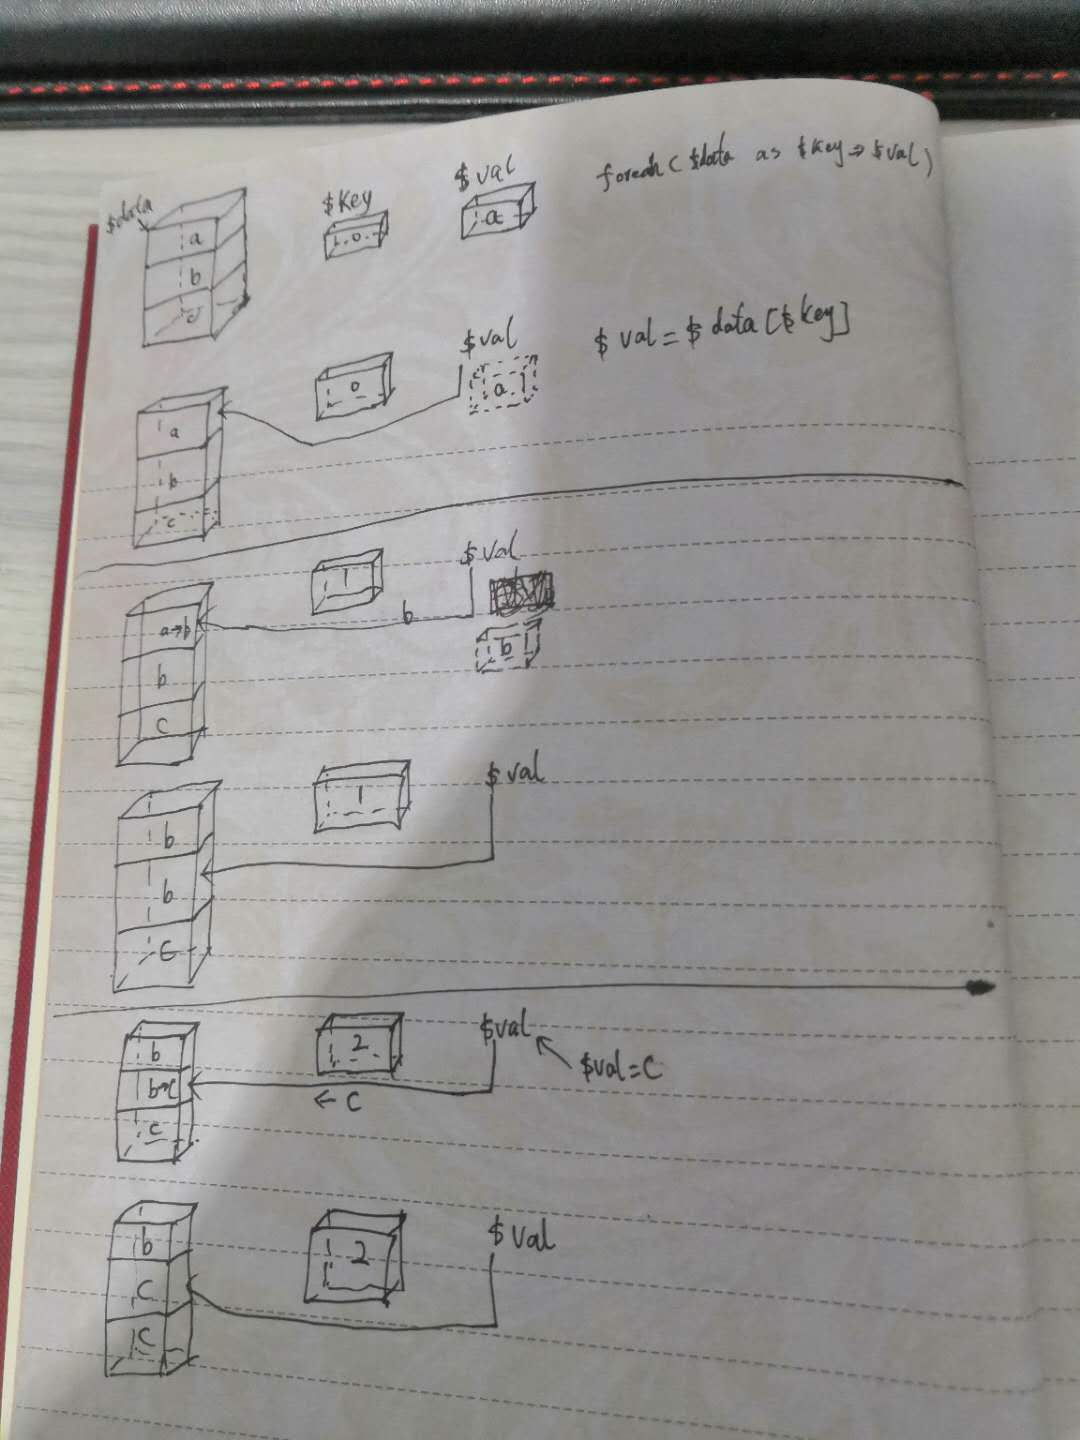 $data
$key
$val
foreach ( $data as $key => $val)
a
0
a
b
c
$val
$ val = $ data [$ key]
0
a
a
b
c
$val
1
b
a→b
b
b
c
$ val
1
b
b
c
$val
2
$val=C
b
b→c
← C
c
$ val
2
b
C
C